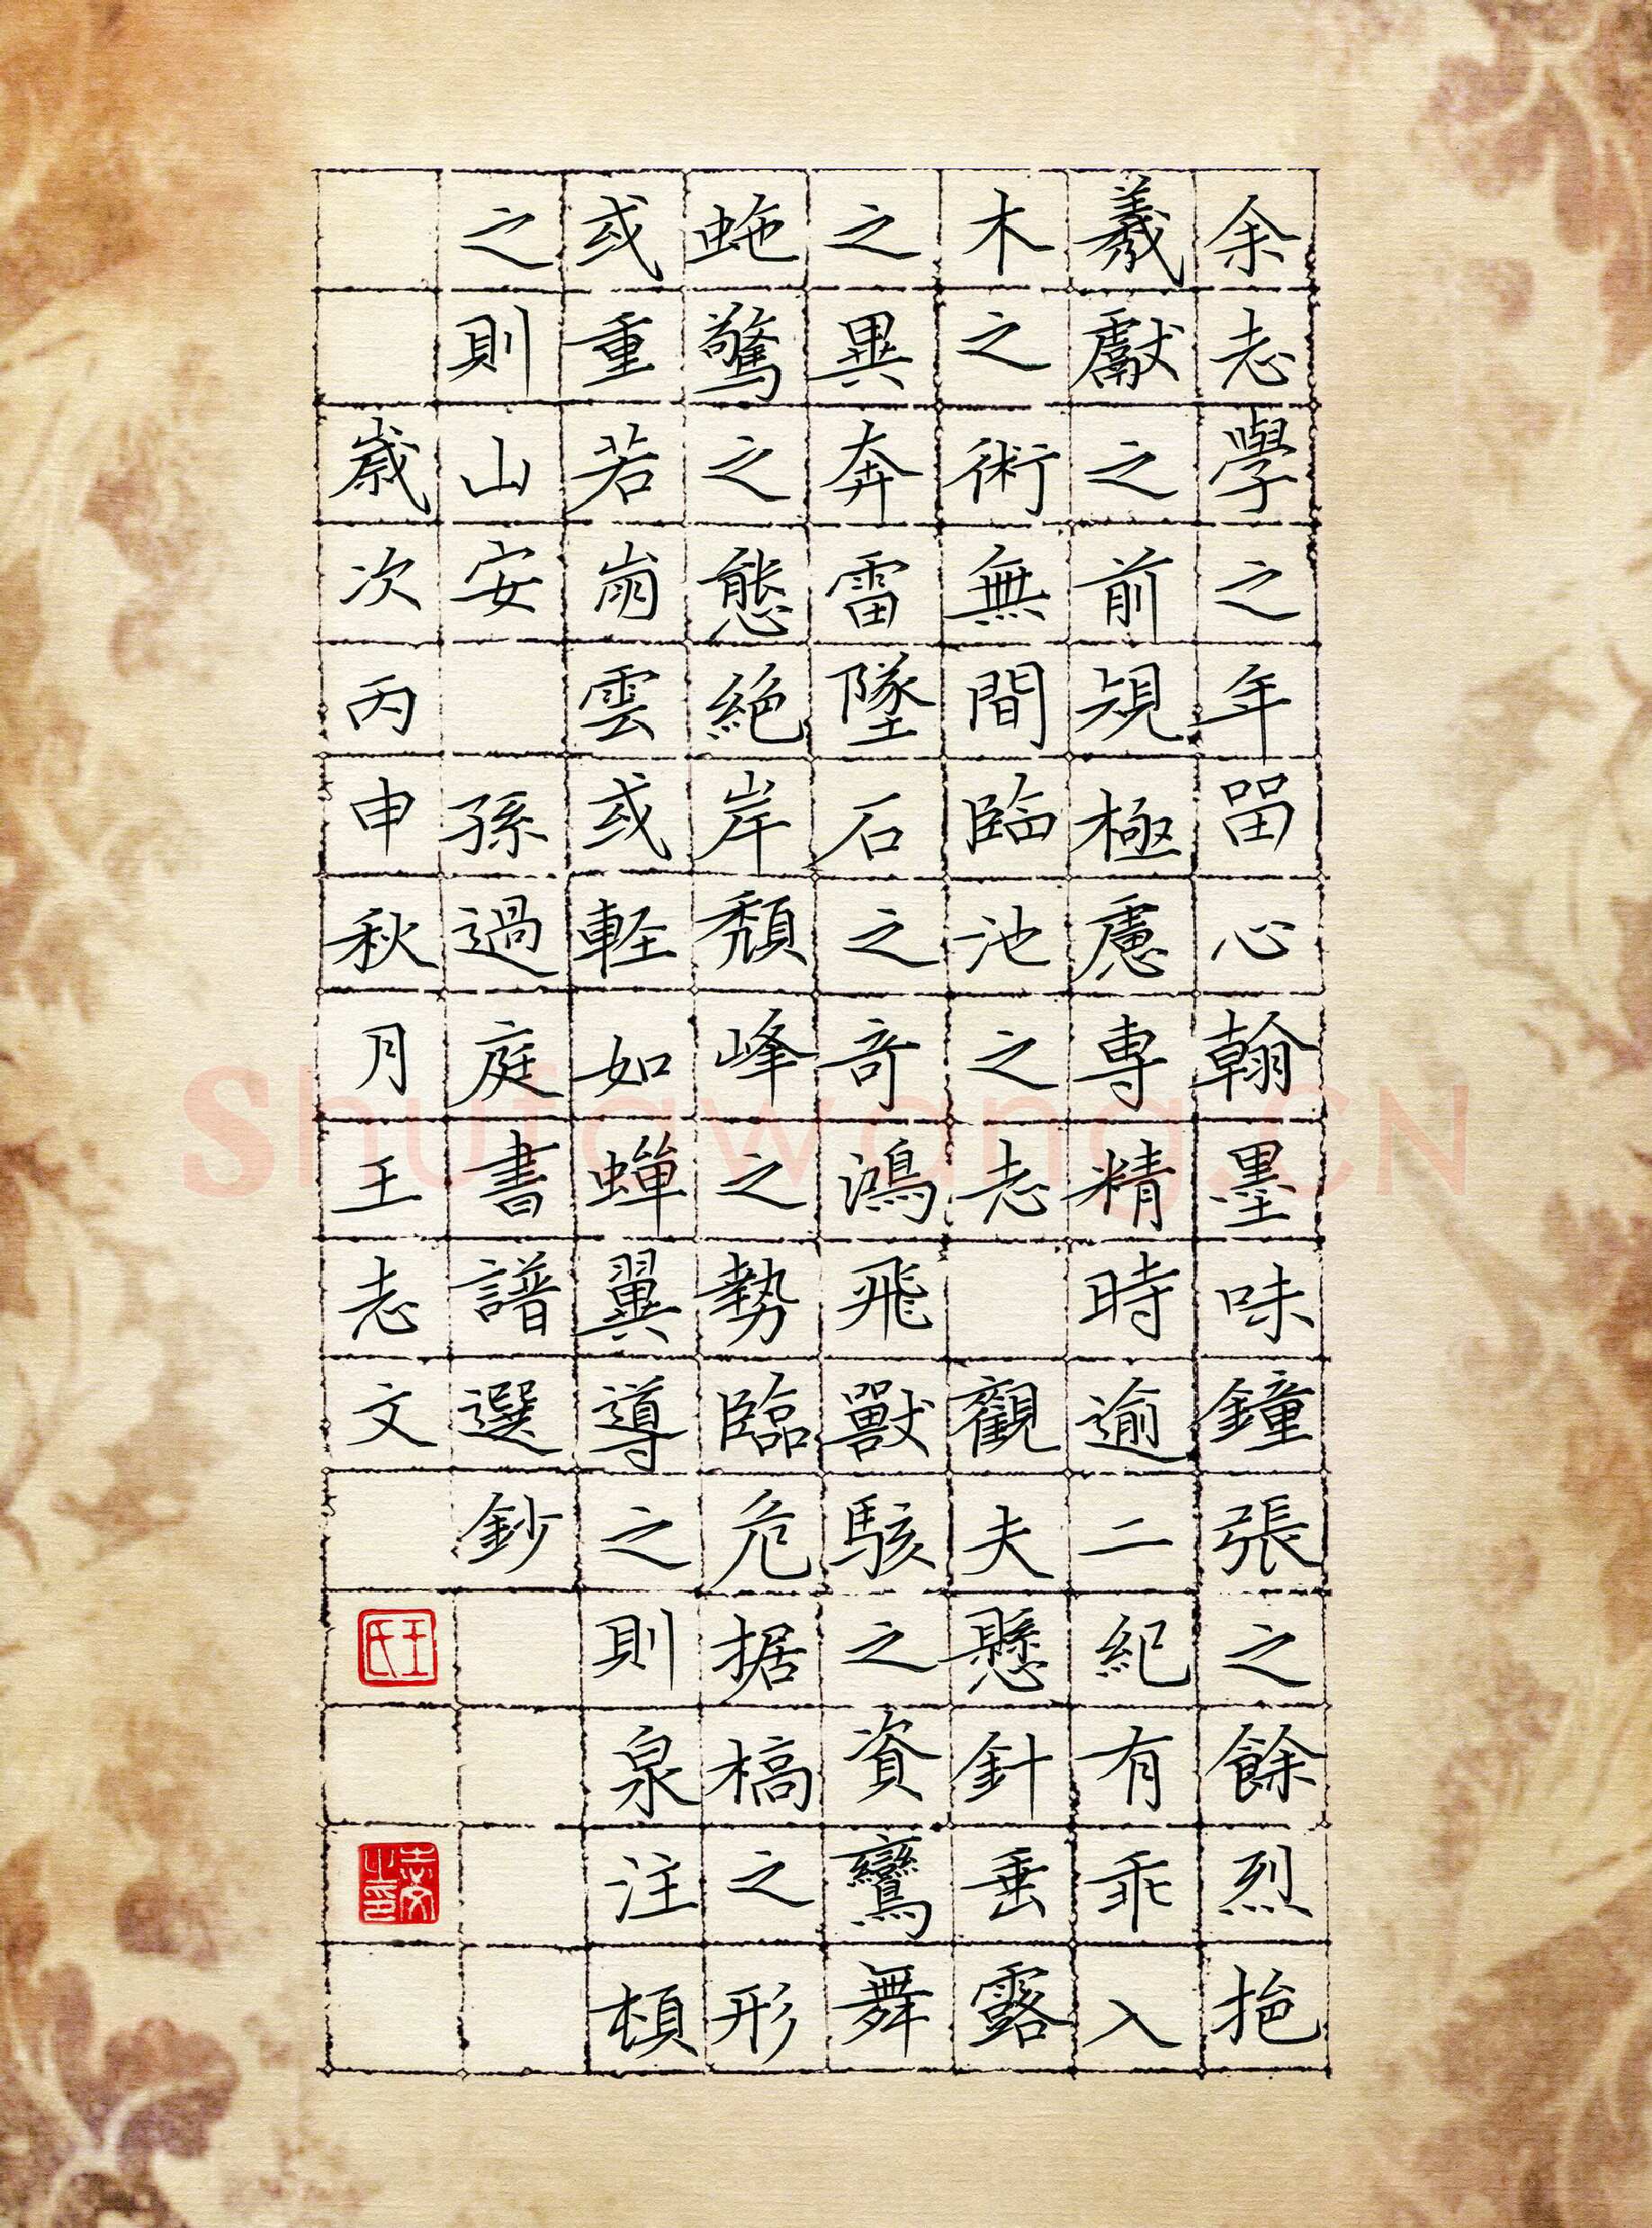 余志學之年留心翰墨味鐘張之餘烈挹
羲獻之前規極慮專精時逾二紀有乖入
木之術無間臨池之志 觀夫懸針垂露
之異奔雷墜石之奇鴻飛獸駭之資鸞舞
蛇驚之態絕岸頹峰之勢臨危据槁之形
或重若崩雲或輕如蟬翼導之則泉注頓
之則山安 孫過庭書譜選鈔
歲次丙申秋月王志文
王氏
志文之印
Shufawang.CN